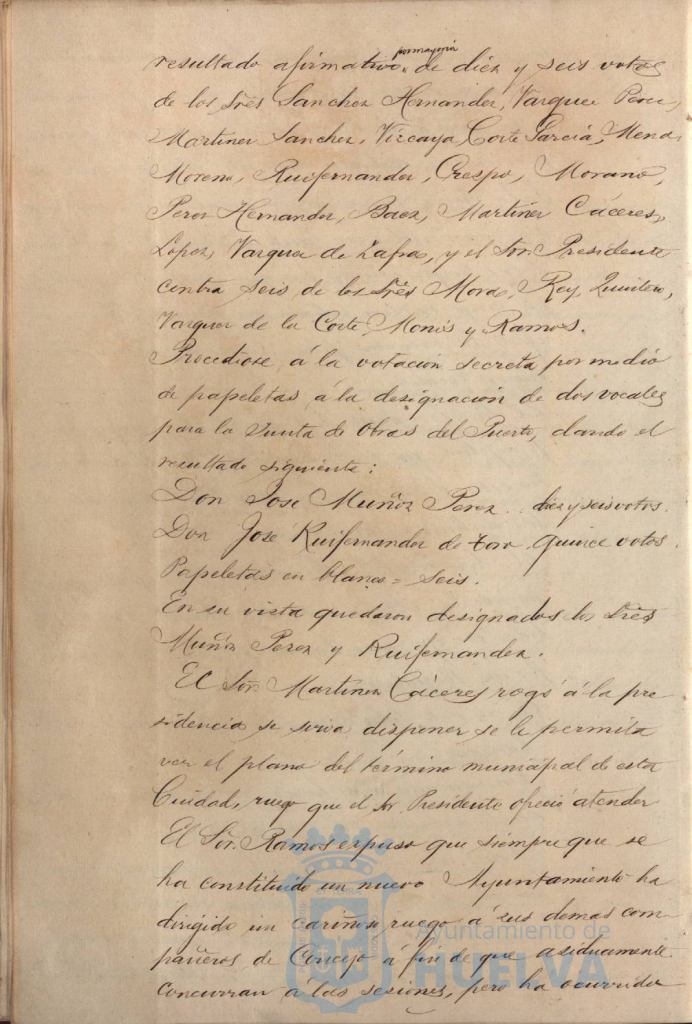 resultado afirmativo por mayoria de diez y seis votos
de los Sres Sanchez Hernandez, Vazquez Perez,
Martinez Sanchez, Vizcaya, Corte Garcia, Mena,
Moreno, Ruifernandez, Crespo, Morano,
Perez Hernandez, Baez, Martinez Cáceres,
Lopez, Vazquez de Zafra, y el Sor. Presidente
contra seis de los Sres Mora, Rey, Quintero,
Vazquez de la Corte, Monis y Ramos.
Procediose á la votación secreta por medio
de papeletas á la designación de dos vocales
para la Junta de Obras del Puerto, dando el
resultado siguiente:
Don Jose Muñoz Perez .. diez y seis votos.
Don José Ruifernandez de Toro. quince votos.
Papeletas en blanco = Seis.
En su vista quedaron designados los Sres
Muñoz Perez y Ruifernandez.
El Sor. Martinez Cáceres rogó á la pre
sidencia se sirva disponer se le permita
ver el plano del término municipal de esta
Ciudad, ruego que el Sr Presidente ofreció atender
El Sor. Ramos expuso que siempre que se
ha constituido un nuevo Ayuntamiento ha
dirigido un cariñoso ruego á sus demas com-
pañeros de Concejo á fin de que asiduamente
concurran á las sesiones, pero ha ocurrido
Ayuntamiento de
HUELVA